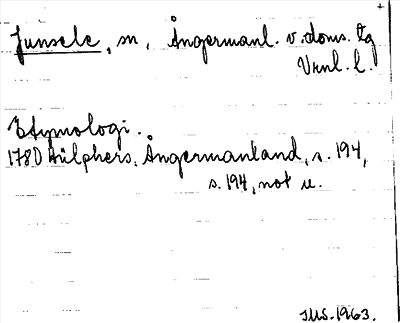 Junsele, sn, Ångermanl. v. doms. tg
Vrnl. l.
Etymologi.
1780 Hülphers. Ångermanland, s. 194,
s. 194, not u.
JUS. 1963.